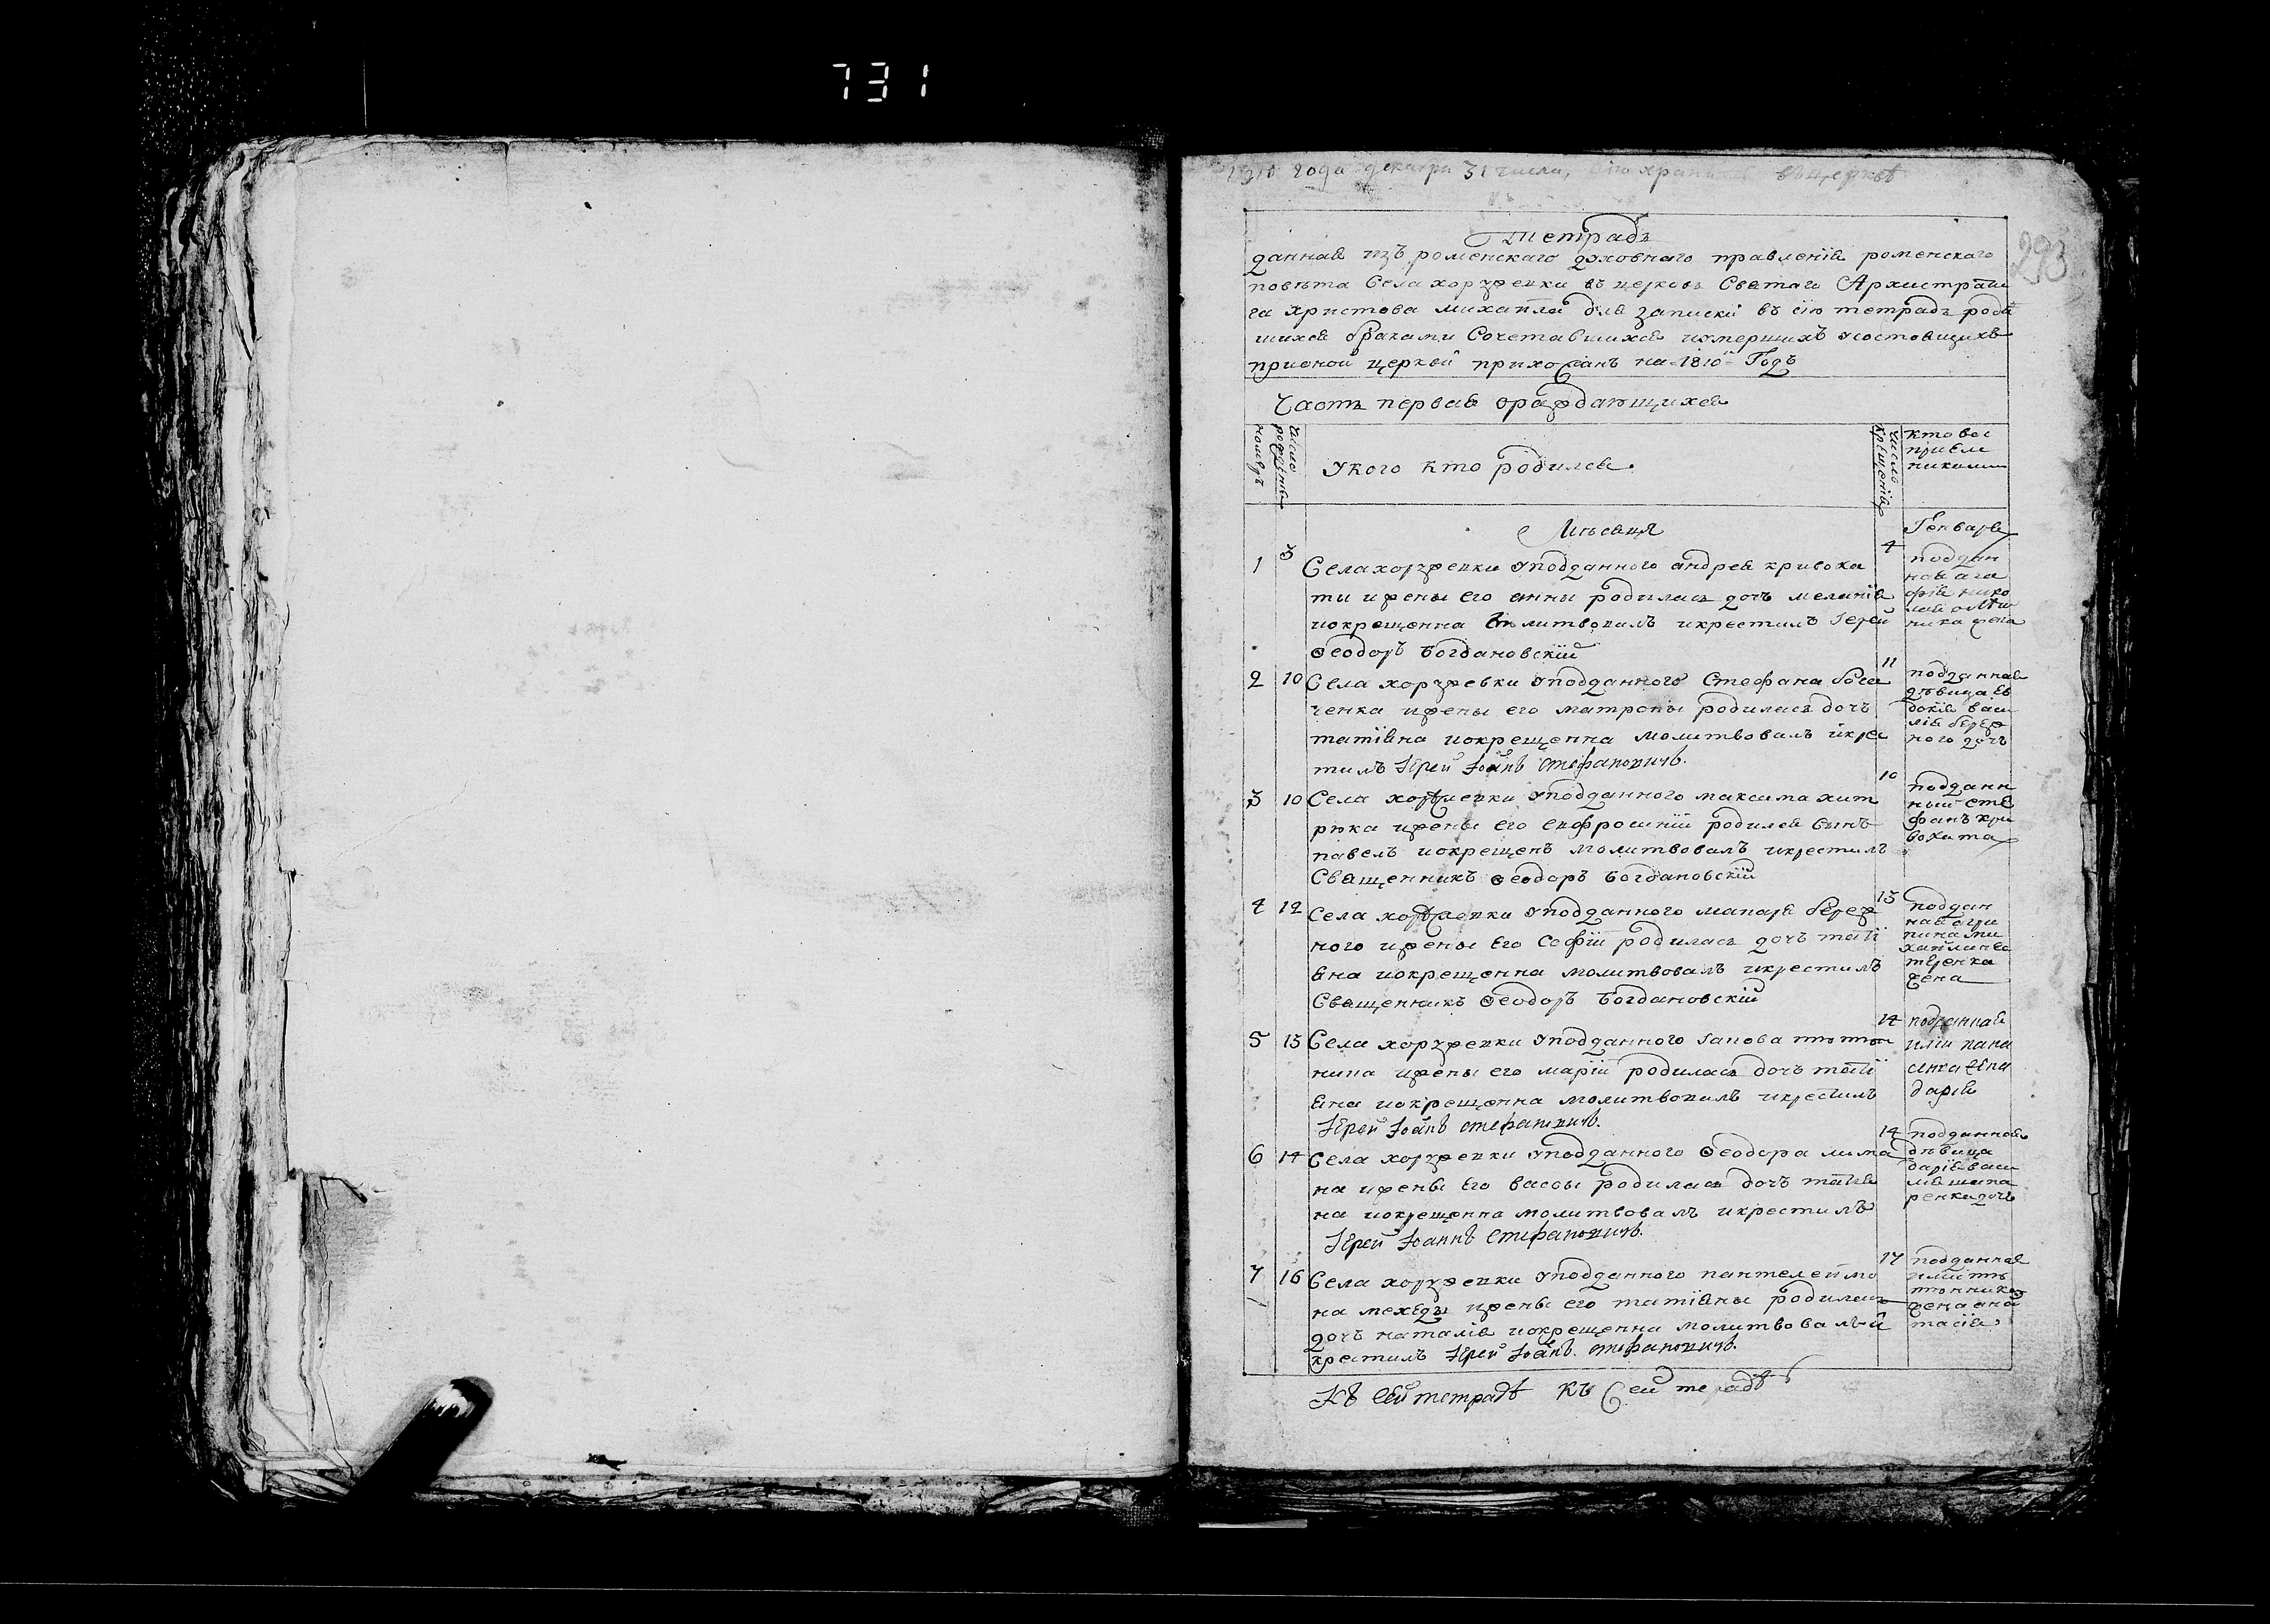 731
1810 года декабря 31 числа, сію въ церковѣ
293
Тетрадь
данная изъ роменскаго духовнаго правленія роменскаго
повѣта Села хоружевки въ церковь Святаго Архистрати
га христова михаила для записки въ сію тетрадь роди
шихся браками Сочетавшихся умершихъ исостоящихъ
прионой церкви прихожанъ на 1810й Годъ
Часть первая ораждающихся
номеръ
Число рожденія
Укого кто родился
Число крещенія
кто вос
пріем
никами
Мѣсяця
Генваря
1 3 4
Села хоружевки уподданного андрея кривоха
ти ижены его анны родилась дочъ меланія
иокрещенна молитвовалъ икрестилъ Іерей
Феодоръ Богдановскій
поддан
ная ага
фія нико
лая
ника жена
2 10 11
Села хоружевки уподданного Стефана
ченка ижены его матроны родилась дочъ
татіяна иокрещенна молитвовалъ икрес
тилъ Іерей Іоанъ Стефановичъ.
подданная
дѣвица ев
докія васи
лія береж
ного дочъ
3 10 10
Села хоружевки уподданного максима хит
рика ижены его евфросиніи родился Сынъ
павелъ иокрещенъ молитвовалъ икрестилъ
Священникъ Феодоръ Богдановскій
подданн
ный сте
фанъ кри
вохата
4 12 13
Села хоружевки уподданного макара береж
ного ижены его Софіи родилась дочъ таті
яна иокрещенна молитвовалъ икрестилъ
Священникъ Феодоръ Богдановскій
поддан
ная агри
пина ми
хаила
жена
5 13 14
Села хоружевки уподданного іакова
нина ижены его маріи родилась дочъ таті
яна иокрещенна молитвовалъ икрестилъ
Іерей Іоанъ Стефановичъ.
подданная
иліи пана
сенка жена
дарія
6 14 14
Села хоружевки уподданного Феодора лима
на ижены его васси родилась дочъ татія
на иокрещенна молитвовалъ икрестилъ
Іерей Іоаннъ Стефановичъ.
подданная
дѣвица
дарія васи
лія
ренка дочъ
7 16 17
Села хоружевки уподданного пантелеймо
на мехеды ижены его татіяны родилась
дочъ наталія иокрещенна молитвовалъ и
крестилъ Іерей Іоанъ Стефановичъ.
подданная
жена ана
тасія
Къ Сей тетрадѣ Къ Сей тетрадѣ